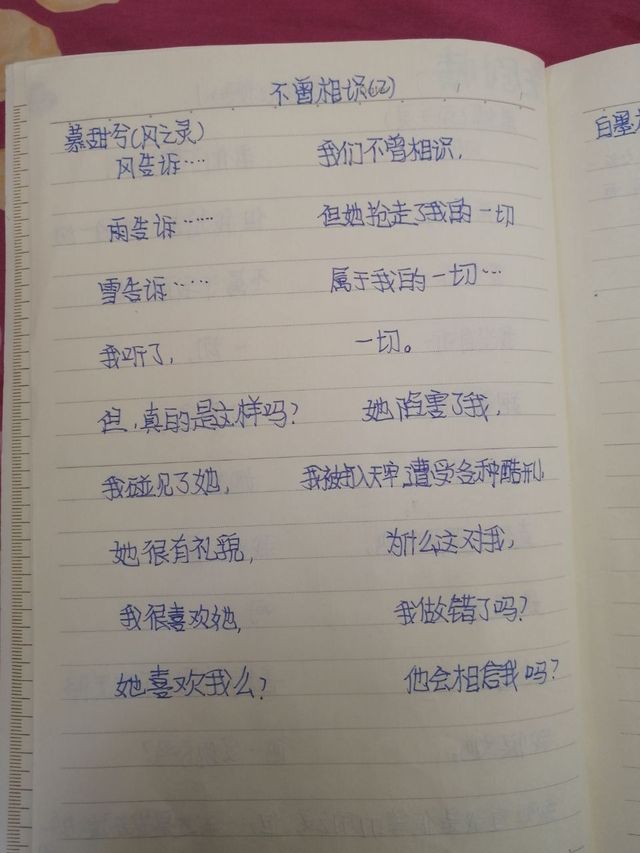 不曾相识(2)
慕甜兮(风之灵)
风告诉····
雨告诉······
雪告诉·····
我听了,
但,真的是这样吗?
我碰见了她,
她很有礼貌,
我很喜欢她,
她喜欢我么?
我们不曾相识,
但她抢走了我的一切
属于我的一切···
一切。
她陷害了我,
我被打入天牢,遭受各种酷刑,
为什么这对我,
我做错了吗?
他会相信我吗?
白墨